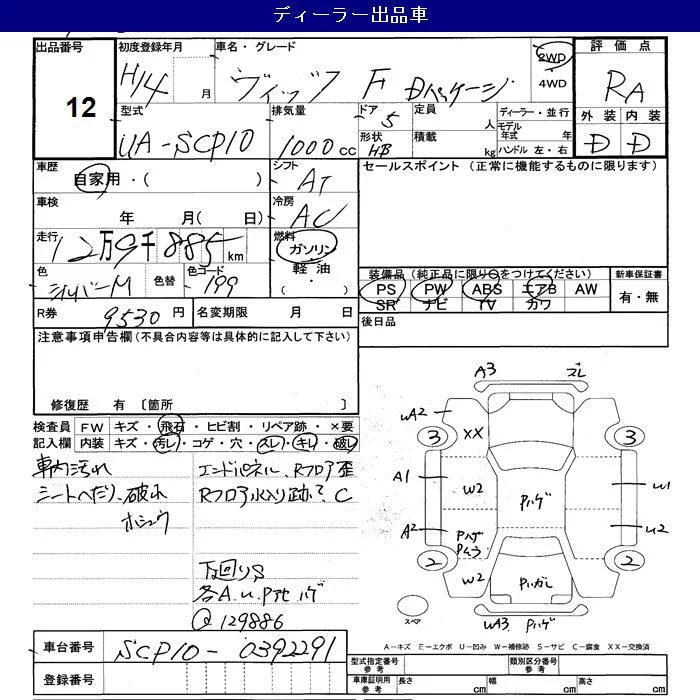 ディーラー出品車
出品番号 初度登録年月 車名・グレード 2WD 評価点
12 H14 月 ヴィッツ F Dパッケージ 4WD RA
型式 排気量 ドア 定員 ディーラー・並行 外装 内装
UA-SCP10 1000cc 5 人 モデル年式 年 D D
形状 HB 積載 kg ハンドル 左・右
車歴 シフト セールスポイント (正常に機能するものに限ります)
自家用・( ) AT
車検 冷房
年 月( 日) AC
走行 燃料
12万9千885km ガソリン
色 色替 色コード 軽油
シルバーM 199 ( ・ )
装備品(純正品に限り○をつけてください) 新車保証書
PS PW ABS エアB AW 有・無
SR ナビ TV カワ
R券 9530円 名変期限 月 日 後日品
注意事項申告欄(不具合内容等は具体的に記入して下さい)
修復歴 有 〔箇所 〕
検査員 FW キズ・飛石・ヒビ割・リペア跡・×要
記入欄 内装 キズ・汚レ・コゲ・穴・スレ・キレ・破レ
車内汚れ エンドパネル、Rフロア歪
シートへたり、破れ Rフロア水入り跡、C
ホシュウ
下回りS
各A.U.P
Q 129886
A3 ズレ
UA2 XX 3 3
A1 W2 Pハゲ W1
A2 U2
PハゲPムラ
2 W2 2
スペア UA3 Pハゲ
A-キズ E-エクボ U-凹み W-補修跡 S-サビ C-腐食 XX-交換済
車台番号 SCP10-0392291
型式指定番号 参考 類別区分番号 参考
登録番号 車庫証明用 参考 長さ cm 幅 cm 高さ cm